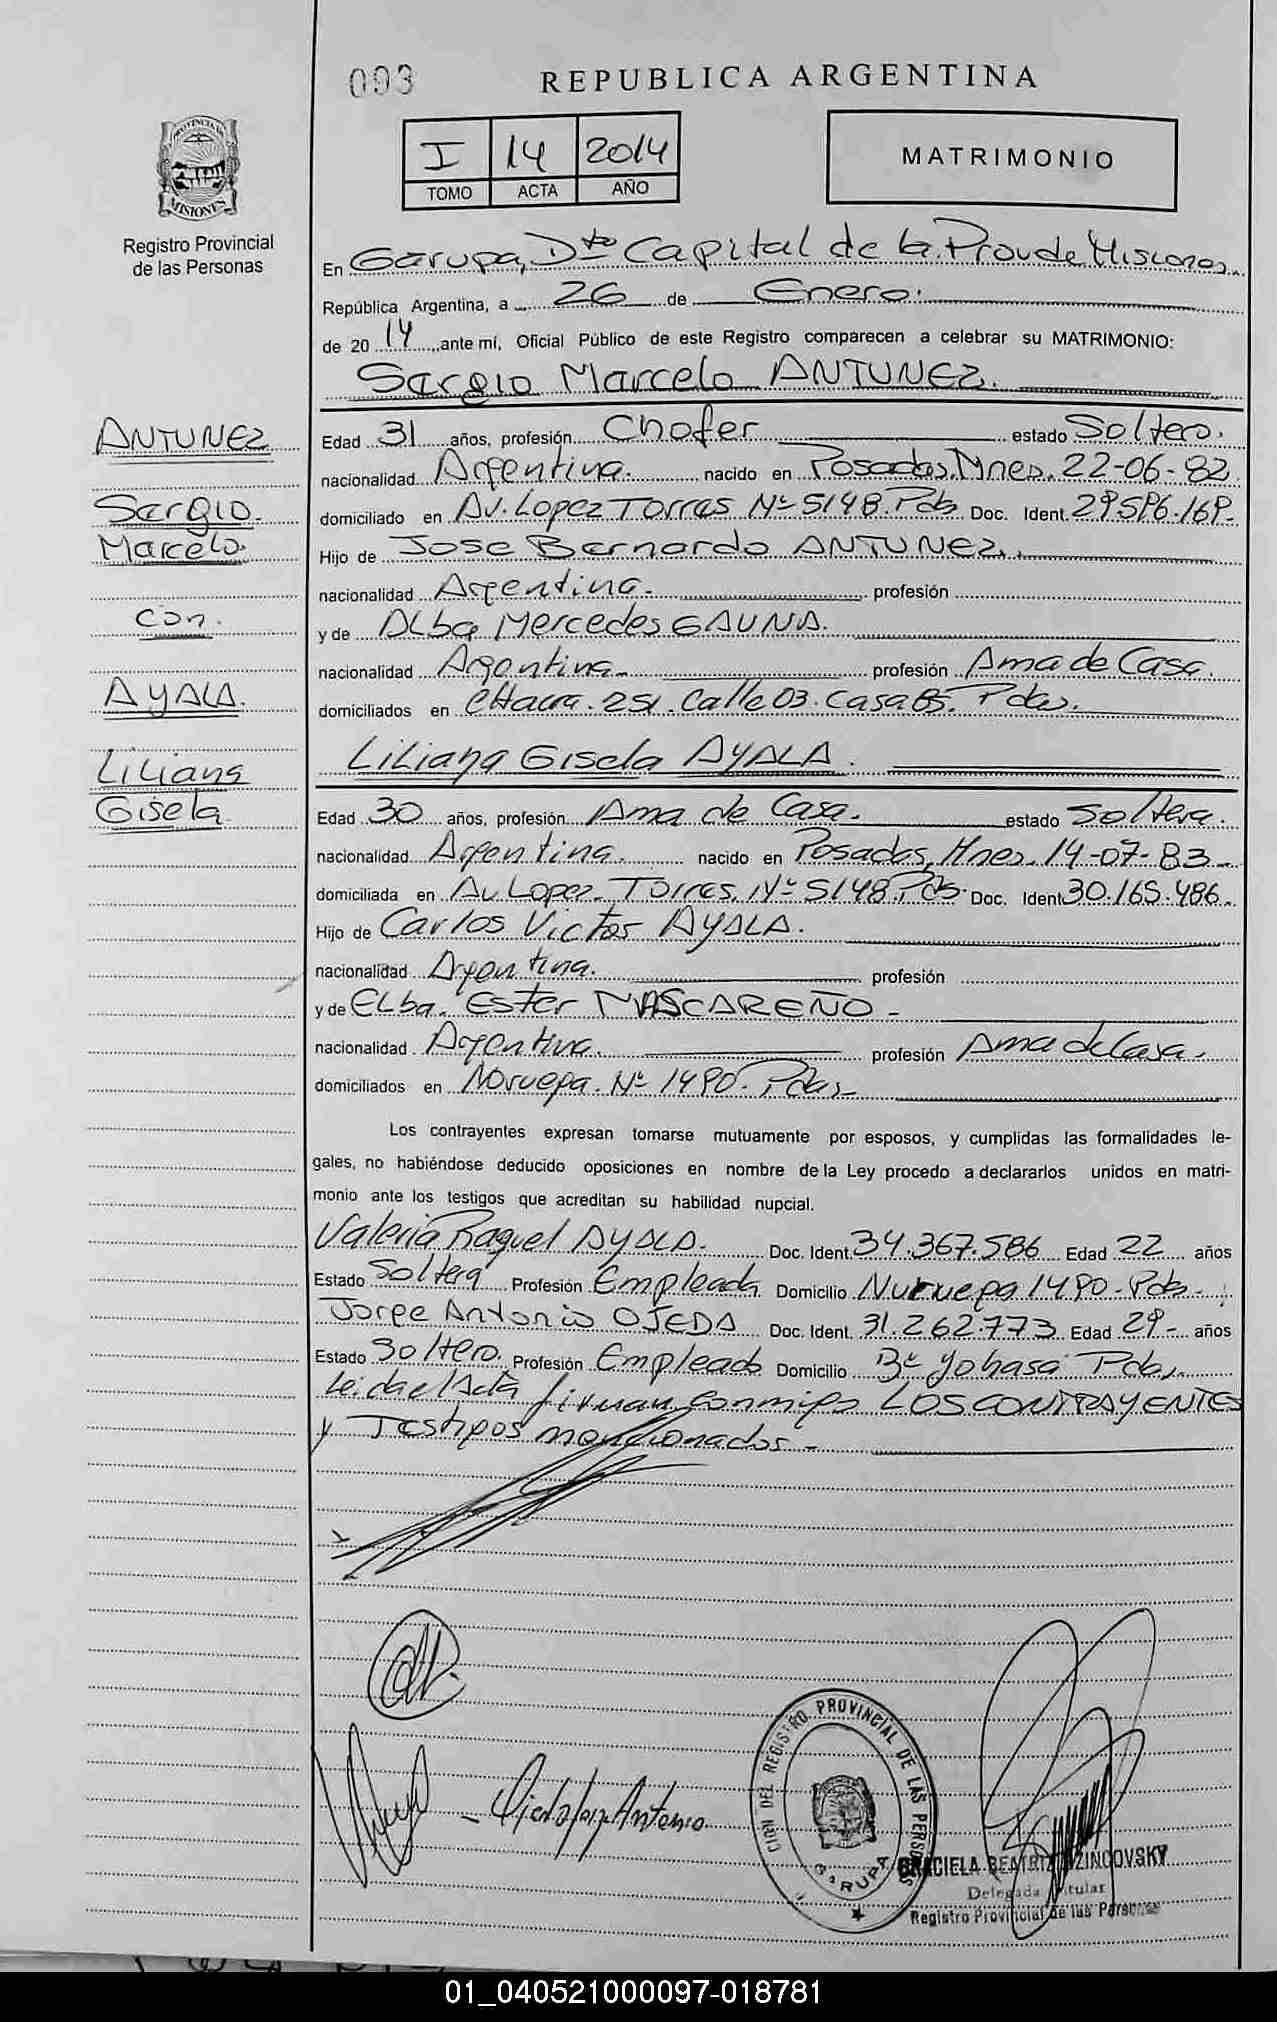 093
REPUBLICA ARGENTINA
I 14 2014
TOMO ACTA AÑO
MATRIMONIO
PROVINCIA DE
MISIONES
Registro Provincial
de las Personas
En Garupa, Dto Capital de la Prov de Misiones
República Argentina, a 26 de Enero.
de 2014 ante mí, Oficial Público de este Registro comparecen a celebrar su MATRIMONIO:
Sergio Marcelo ANTUNEZ.
ANTUNEZ
Sergio
Marcelo
con
AYALA.
Liliana
Gisela
Edad 31 años, profesión Chofer estado Soltero.
nacionalidad Argentina. nacido en Posadas, Mnes. 22-06-82
domiciliado en Av. Lopez Torres Nº 5148. Pdas Doc. Ident. 29.596.169-
Hijo de Jose Bernardo ANTUNEZ.
nacionalidad Argentina. profesión
y de ALba Mercedes GAUNA.
nacionalidad Argentina. profesión Ama de Casa.
domiciliados en CHacra. 251. Calle 03. Casa 85. Pdas.
LiLiana Gisela AYALA.
Edad 30 años, profesión Ama de Casa. estado Soltera.
nacionalidad Argentina. nacido en Posadas, Mnes. 14-07-83
domiciliada en Av. Lopez Torres. Nº 5148. Pds. Doc. Ident 30.165.486
Hijo de Carlos Victor AYALA.
nacionalidad Argentina. profesión
y de ELba. Ester MASCAREÑO -
nacionalidad Argentina. profesión Ama de Casa.
domiciliados en Noruega. Nº 1490. Pdas
Los contrayentes expresan tomarse mutuamente por esposos, y cumplidas las formalidades le-
gales, no habiéndose deducido oposiciones en nombre de la Ley procedo a declararlos unidos en matri-
monio ante los testigos que acreditan su habilidad nupcial.
Valeria Raquel AYALA. Doc. Ident. 34.367.586 Edad 22 años
Estado Soltera Profesión Empleada Domicilio Noruega 1490 - Pdas -
Jorge Antonio OJEDA Doc. Ident. 31.262.773 Edad 29- años
Estado Soltero. Profesión Empleado Domicilio Bº Yohasa Pdas
Leida el Acta firman conmigo LOS CONTRAYENTES
y Testigos mencionados -
Antonio
REGISTRO PROVINCIAL DE LAS PERSONAS
GARUPA
GRACIELA BEATRIZ
Delegada Titular
Registro Provincial de las Personas
01_040521000097-018781